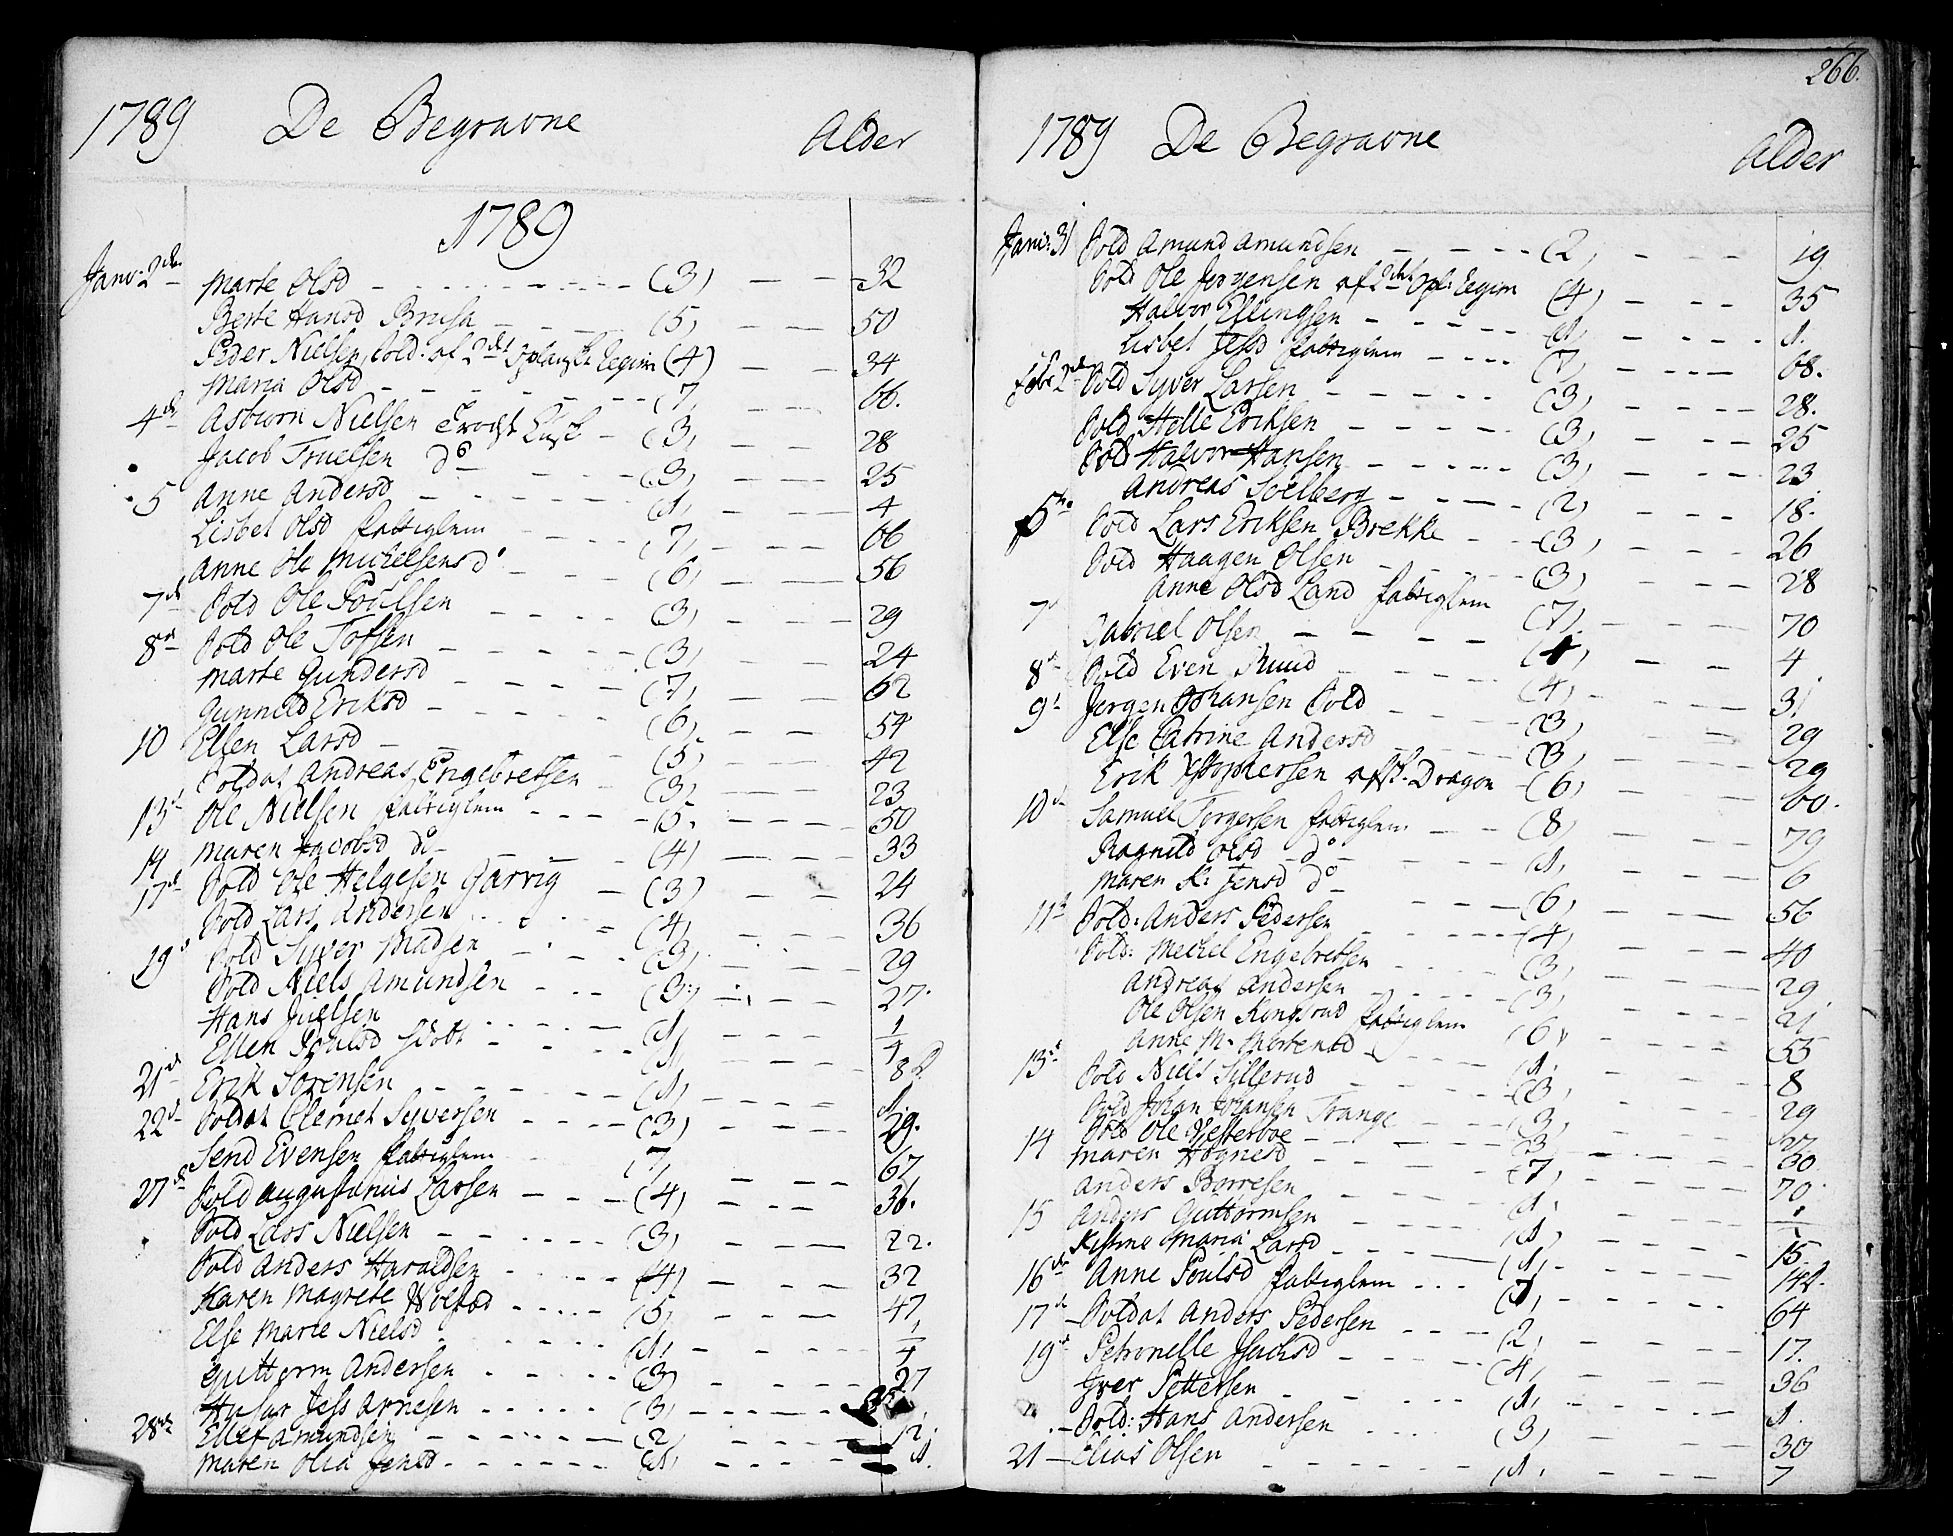 1789 De Begravne Alder
1789
Janv: 2de Marte Olsd (3) 32
Berte Hansd Brusa (5) 50
Peder Nielsen, Sold: af 2det Oplandske Regim (4) 34
Maria Olsd (7) 66.
4de Asbiorn Nielsen (3) 28
Jacob Truelsen do (3) 25
5 Anne Andersd (1) 4
Lisbet Olsd fattiglem (7) 66
Anne Ole Michelsensd (6) 56
7de Sold Ole Poulsen (3) 29
8de Sold Ole Tofsen (3) 24
Marte Gundersd (7) 62
Gunnild Eriksd (6) 54
10 Ellen Larsd (5) 42
Soldat Andreas Engebretsen (3) 23
13d Ole Nielsen fattiglem (5) 50
14 Maren Jacobsd do (4) 33
17de Sold Ole Helgesen Garvig (3) 24
Sold Lars Andersen (4) 36
19 Sold Syver Madsen (3) 29
Sold Niels Amundsen (3) 27.
Hans Juelsen (1) 1/4
Ellen Poulsd (1) 8
21de Erik Sørensen (1) 1
22d Soldat Clemet Syversen (3) 29.
Send Evensen fattiglem (7) 67
27de Sold Augustinus Larsen (4) 36.
Sold Lars Nielsen (3) 22.
Sold Anders Haraldsen (4) 32
Karen Magrete Wolstad (5) 47
Else Marie Nielsd (1) 1/4
Guttorm Andersen (3) 27
Husar Jess Arnesen (3)
28de Ellef Amundsen (2) 12
Maren Olia Jensd (1) 1.
266.
1789 De Begravne Alder
Janv: 31 Sold Amund Amundsen (2) 19
Sold Ole Jørgensen af 2det Opl: Regim (4) 35
Halvor Ellingsen (1) 1.
Lisbet Jessd fattiglem (7) 68.
Febr 2de Sold Syver Larsen (3) 28.
Sold Helle Eriksen (3) 25
Sold Halvor Hansen (3) 23
Andreas Soelberg (2) 18.
5te Sold Lars Eriksen Brekke (3) 26
Sold Haagen Olsen (3) 28
Anne Olsd Land fattiglem (7) 70
7 Gabriel Olsen (1) 4
8d Sold Even Ruud (4) 31
9d Jørgen Johansen Sold (3) 29
Else Catrine Andersd (3) 29
Erik Christophersen afsk. Dragon (6) 60.
10de Samuel Torgersen fattiglem (8) 79
Ragnild Olsd do (1) 6
Maren K: Jensd do (6) 56
11te Sold: Anders Pedersen (4) 40
Sold: Mechel Engebretsen (3) 29
Andreas Andersen (3) 21
Ole Olsen Kongsrud fattiglem (6) 55
Anne M. Mortensd (1) 8
13de Sold Niels Sillerud (3) 29
Sold Johan Johansen Trange (3) 27
14 Sold Ole Vesterboe (3) 30
Maren Hognesd (7) 70.
Anders Borresen (1)
15 Anders Guttormsen (1)
Kistine Maria Larsd (1)
16de Anne Poulsd fattiglem (7) 64
17de Soldat Anders Pedersen (2) 17.
19de Petronelle Isachsd (4) 36
Iver Pettersen (1) 1.
Sold: Hans Andersen (3) 30
21 Elias Olsen (1) 7